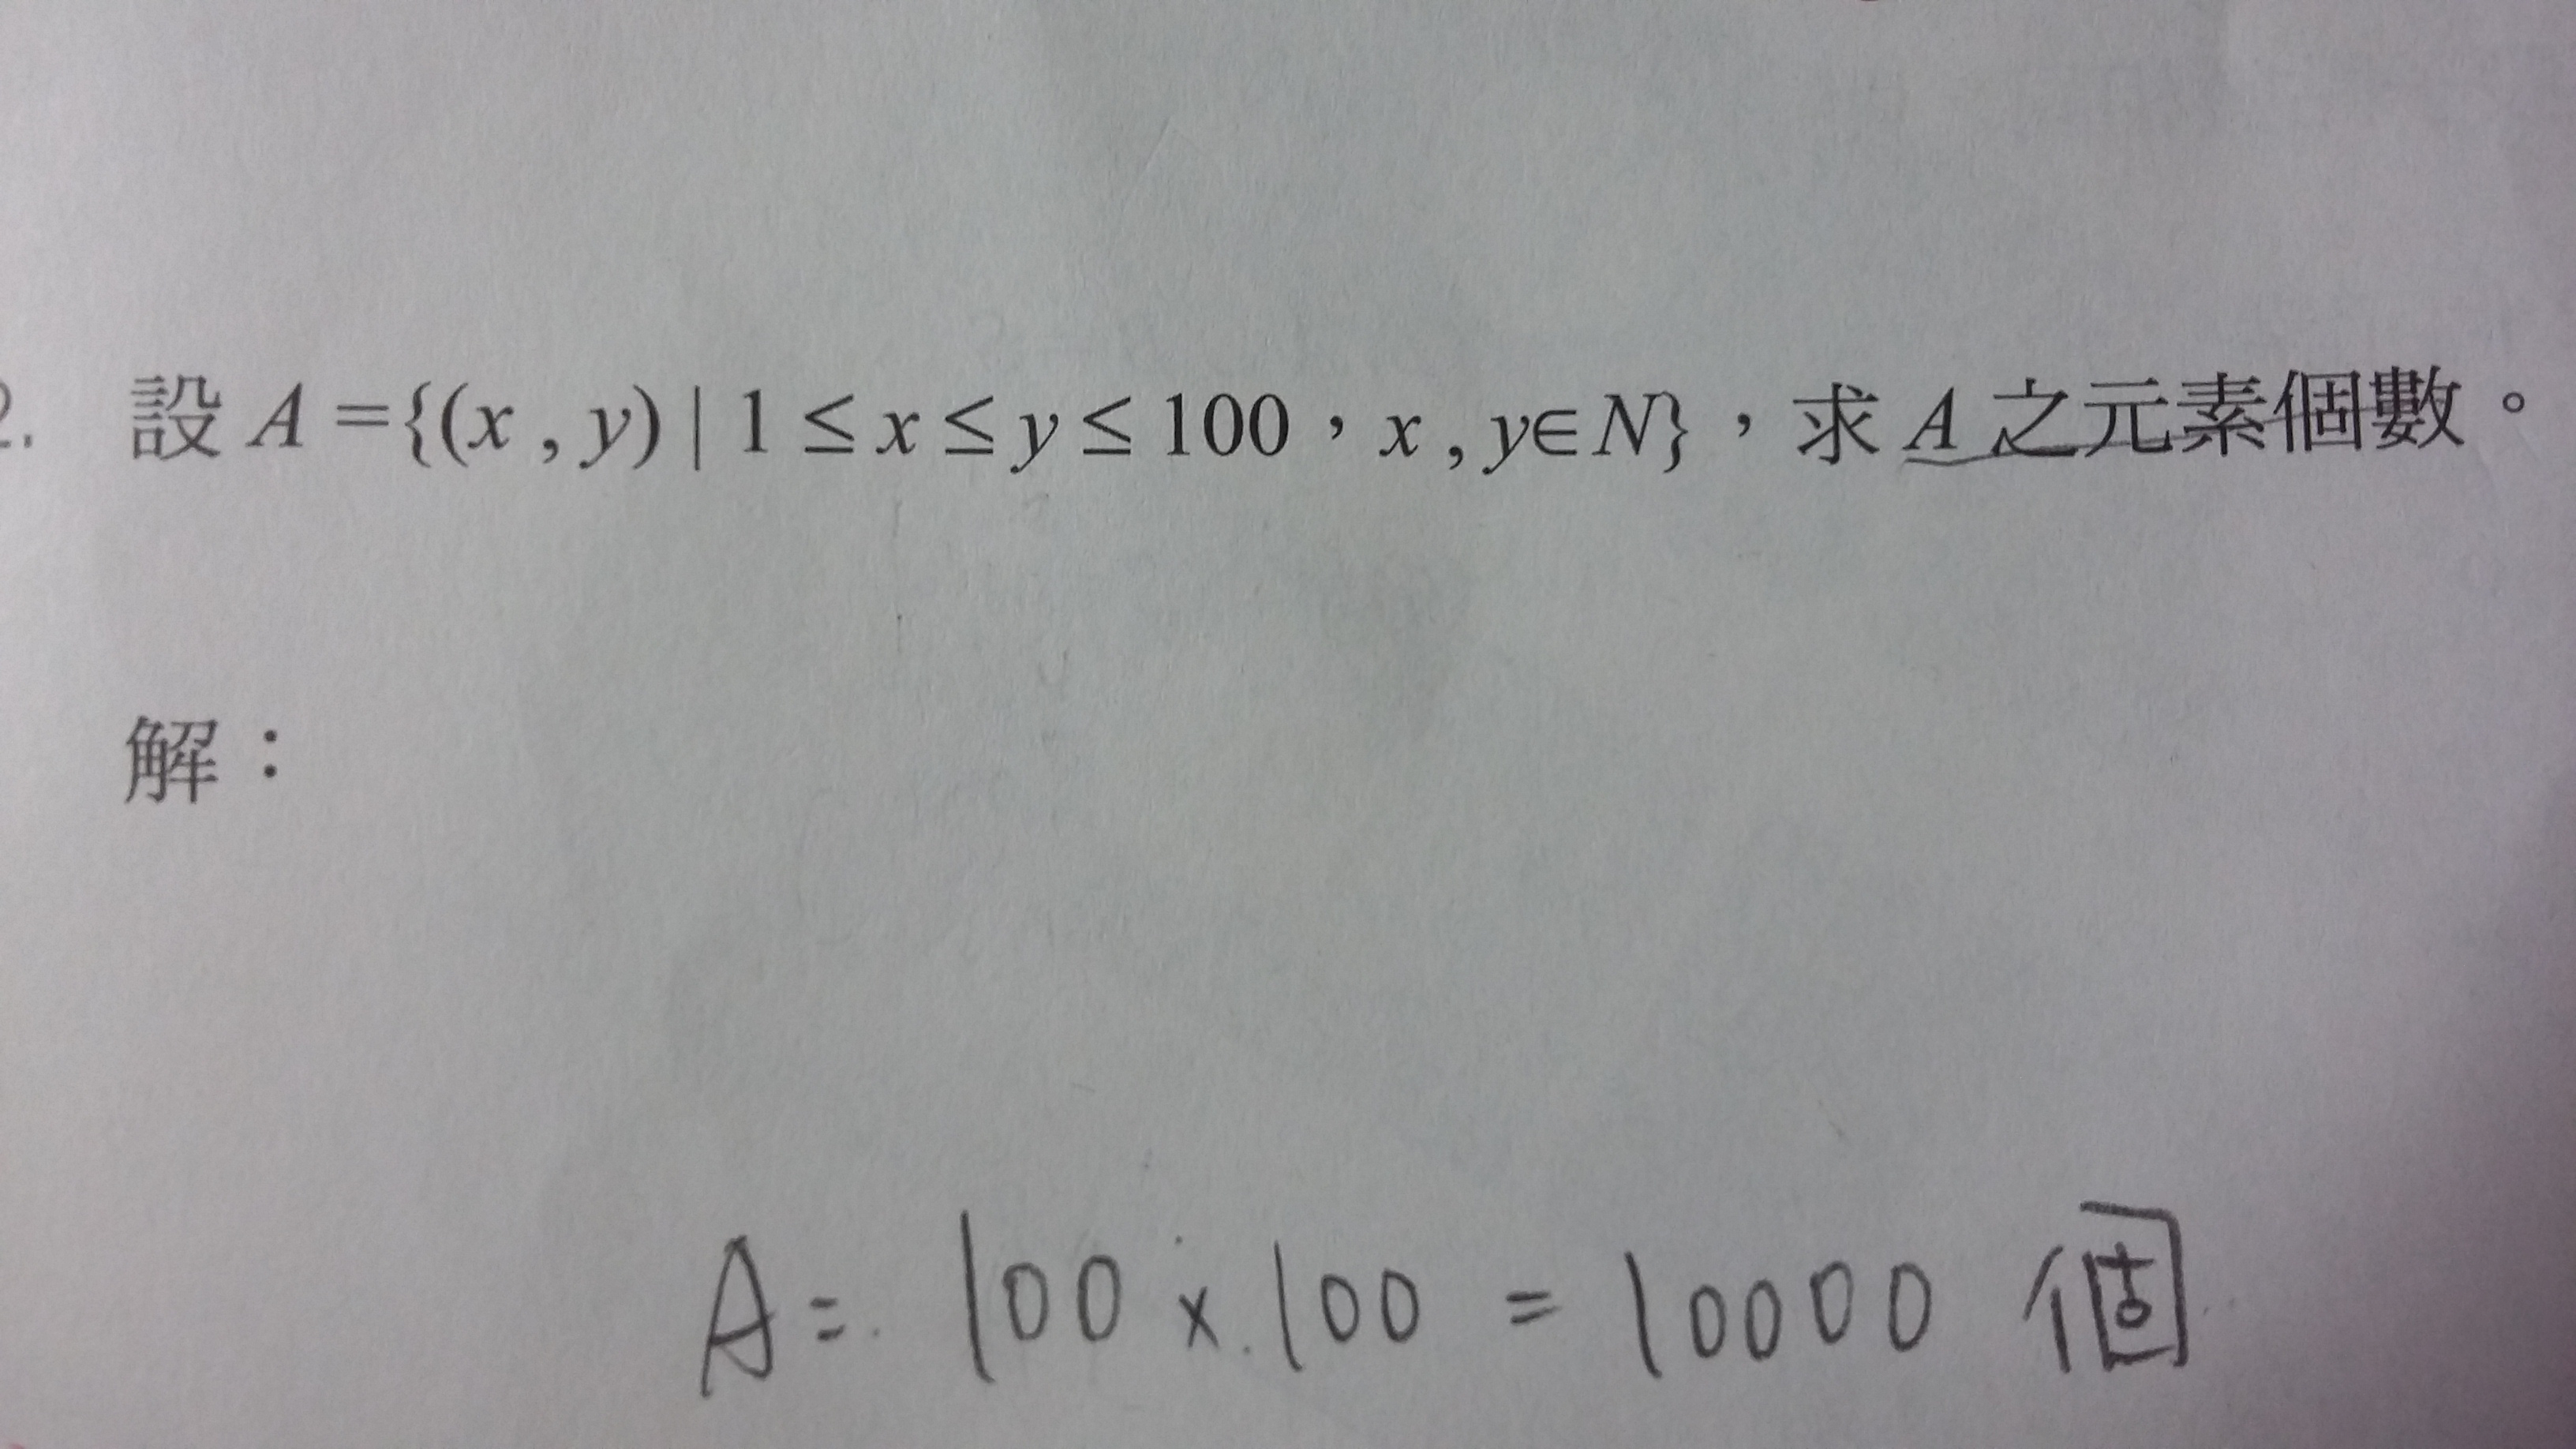 2. 設 A ={(x , y) | 1 ≤ x ≤ y ≤ 100，x , y∈N}，求 A 之元素個數。
解：
A = 100 × 100 = 10000 個